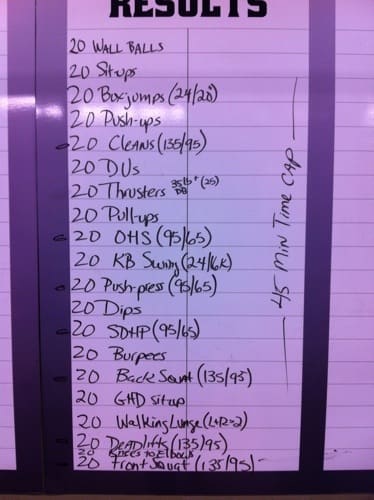 RESULTS
20 WALL BALLS
20 Sit-ups
20 Box jumps (24/20)
20 Push-ups
20 Cleans (135/95)
20 DUs
20 Thrusters 35lb+ (25) DB
20 Pull-ups
20 OHS (95/65)
20 KB Swing (24/16k)
20 Push-press (95/65)
20 Dips
20 SDHP (95/65)
20 Burpees
20 Back Squat (135/95)
20 GHD situp
20 Walking Lunge (L+R=2)
20 Deadlifts (135/95)
20 Knees to Elbows
20 Front Squat (135/95)
45 Min Time CAP